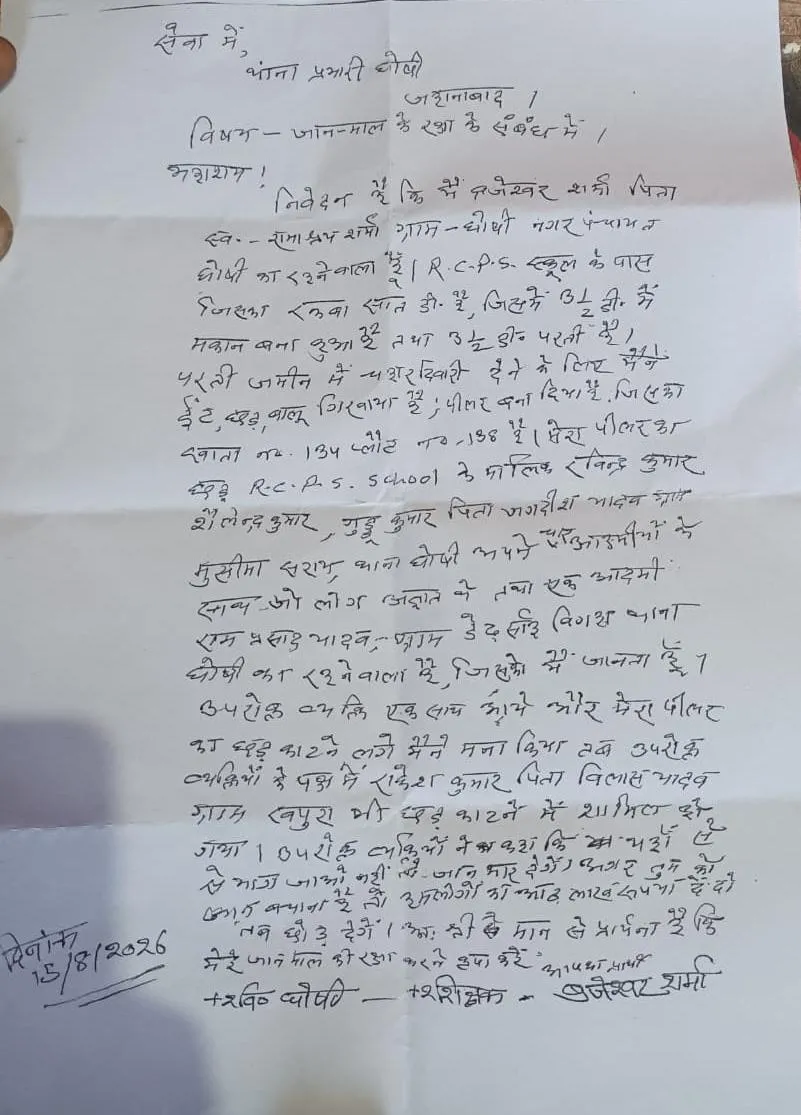 सेवा में,
थाना प्रभारी घोषी
जहानाबाद ।
विषय - जान-माल के रक्षा के संबंध में ।
महाशय !
निवेदन है कि मैं ब्रजेश्वर शर्मा पिता
स्व.- रामाश्रय शर्मा ग्राम - घोषी नगर पंचायत
घोषी का रहने वाला हूँ। R.C.P.S. स्कूल के पास
जिसका रकबा सात डी. है, जिसमें 3 1/2 डी. में
मकान बना हुआ है तथा 3 1/2 डी. परती है।
परती जमीन में चहारदिवारी देने के लिए मैंने
ईंट, छड़, बालू गिरवाया है, पीलर बना दिया है. जिसका
खाता न०. 134 प्लौट न० -138 है। मेरा पीलर का
छड़ R.C.P.S. School के मालिक रविन्द्र कुमार
शैलेन्द्र कुमार, गुड्डू कुमार पिता जगदीश यादव ग्राम
थाना घोषी अपने आदमीयों के
साथ जो लोग अज्ञात थे तथा एक आदमी
राम प्रसाद यादव, ग्राम विगहा थाना
घोषी का रहने वाला है, जिसको मैं जानता हूँ।
उपरोक्त व्यक्ति एक साथ आये और मेरा पीलर
का छड़ काटने लगे मैंने मना किया तब उपरोक्त
व्यक्तियों के पक्ष में राकेश कुमार पिता विलास यादव
ग्राम भी छड़ काटने में शामिल हो
गया। उपरोक्त व्यक्तियों ने कहा कि यहाँ से
से भाग जाओ नहीं तो जान मार देगें। अगर तुम को
जान बचाना है तो हमलोगों को आठ लाख रूपया दे दो
तब छोड़ देगें। अतः श्री मान से प्रार्थना है कि
मेरे जान माल की रक्षा करने कृपा करें.
आपका प्रार्थी
दिनांक
15/8/2026
घोषी — ब्रजेश्वर शर्मा